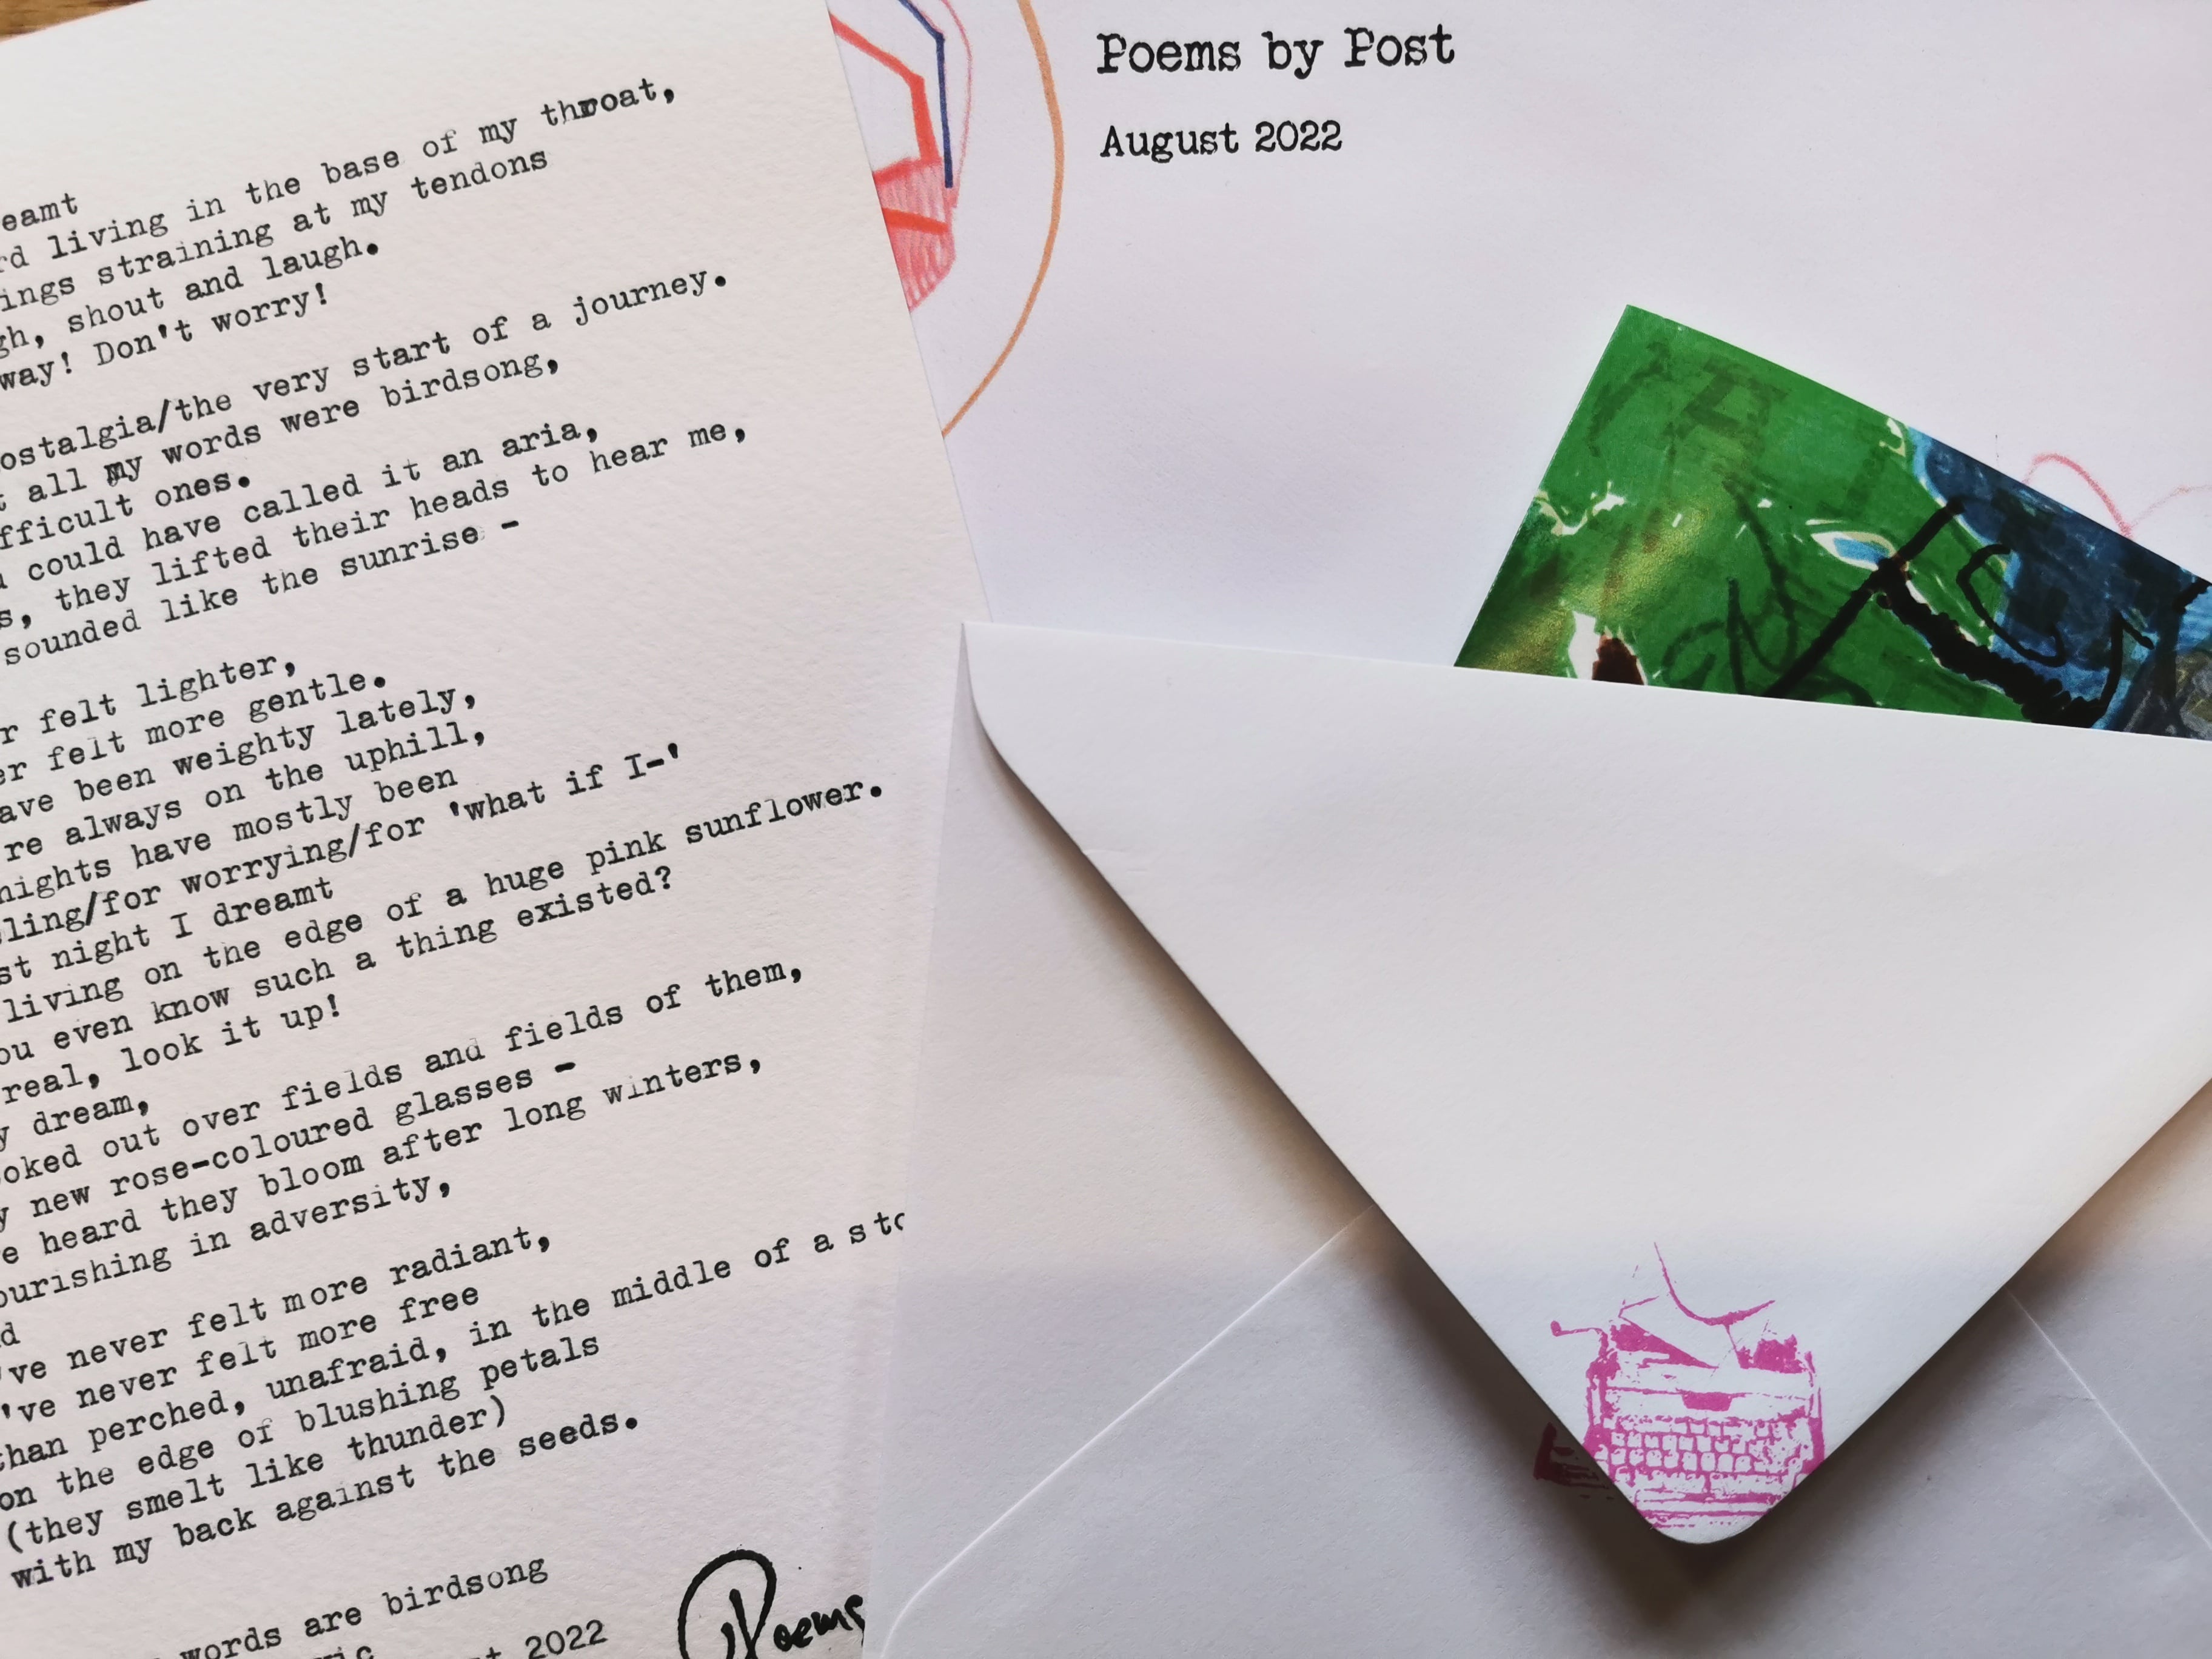 eamt
rd living in the base of my throat,
ings straining at my tendons
gh, shout and laugh.
way! Don't worry!
ostalgia/the very start of a journey.
t all my words were birdsong,
fficult ones.
u could have called it an aria,
s, they lifted their heads to hear me,
sounded like the sunrise -
r felt lighter,
er felt more gentle.
ave been weighty lately,
re always on the uphill,
nights have mostly been
ling/for worrying/for 'what if I-'
st night I dreamt
living on the edge of a huge pink sunflower.
ou even know such a thing existed?
real, look it up!
y dream,
ooked out over fields and fields of them,
y new rose-coloured glasses -
e heard they bloom after long winters,
ourishing in adversity,
d
've never felt more radiant,
've never felt more free
than perched, unafraid, in the middle of a sto
on the edge of blushing petals
(they smelt like thunder)
with my back against the seeds.
words are birdsong
ic
st 2022
Poems
Poems by Post
August 2022